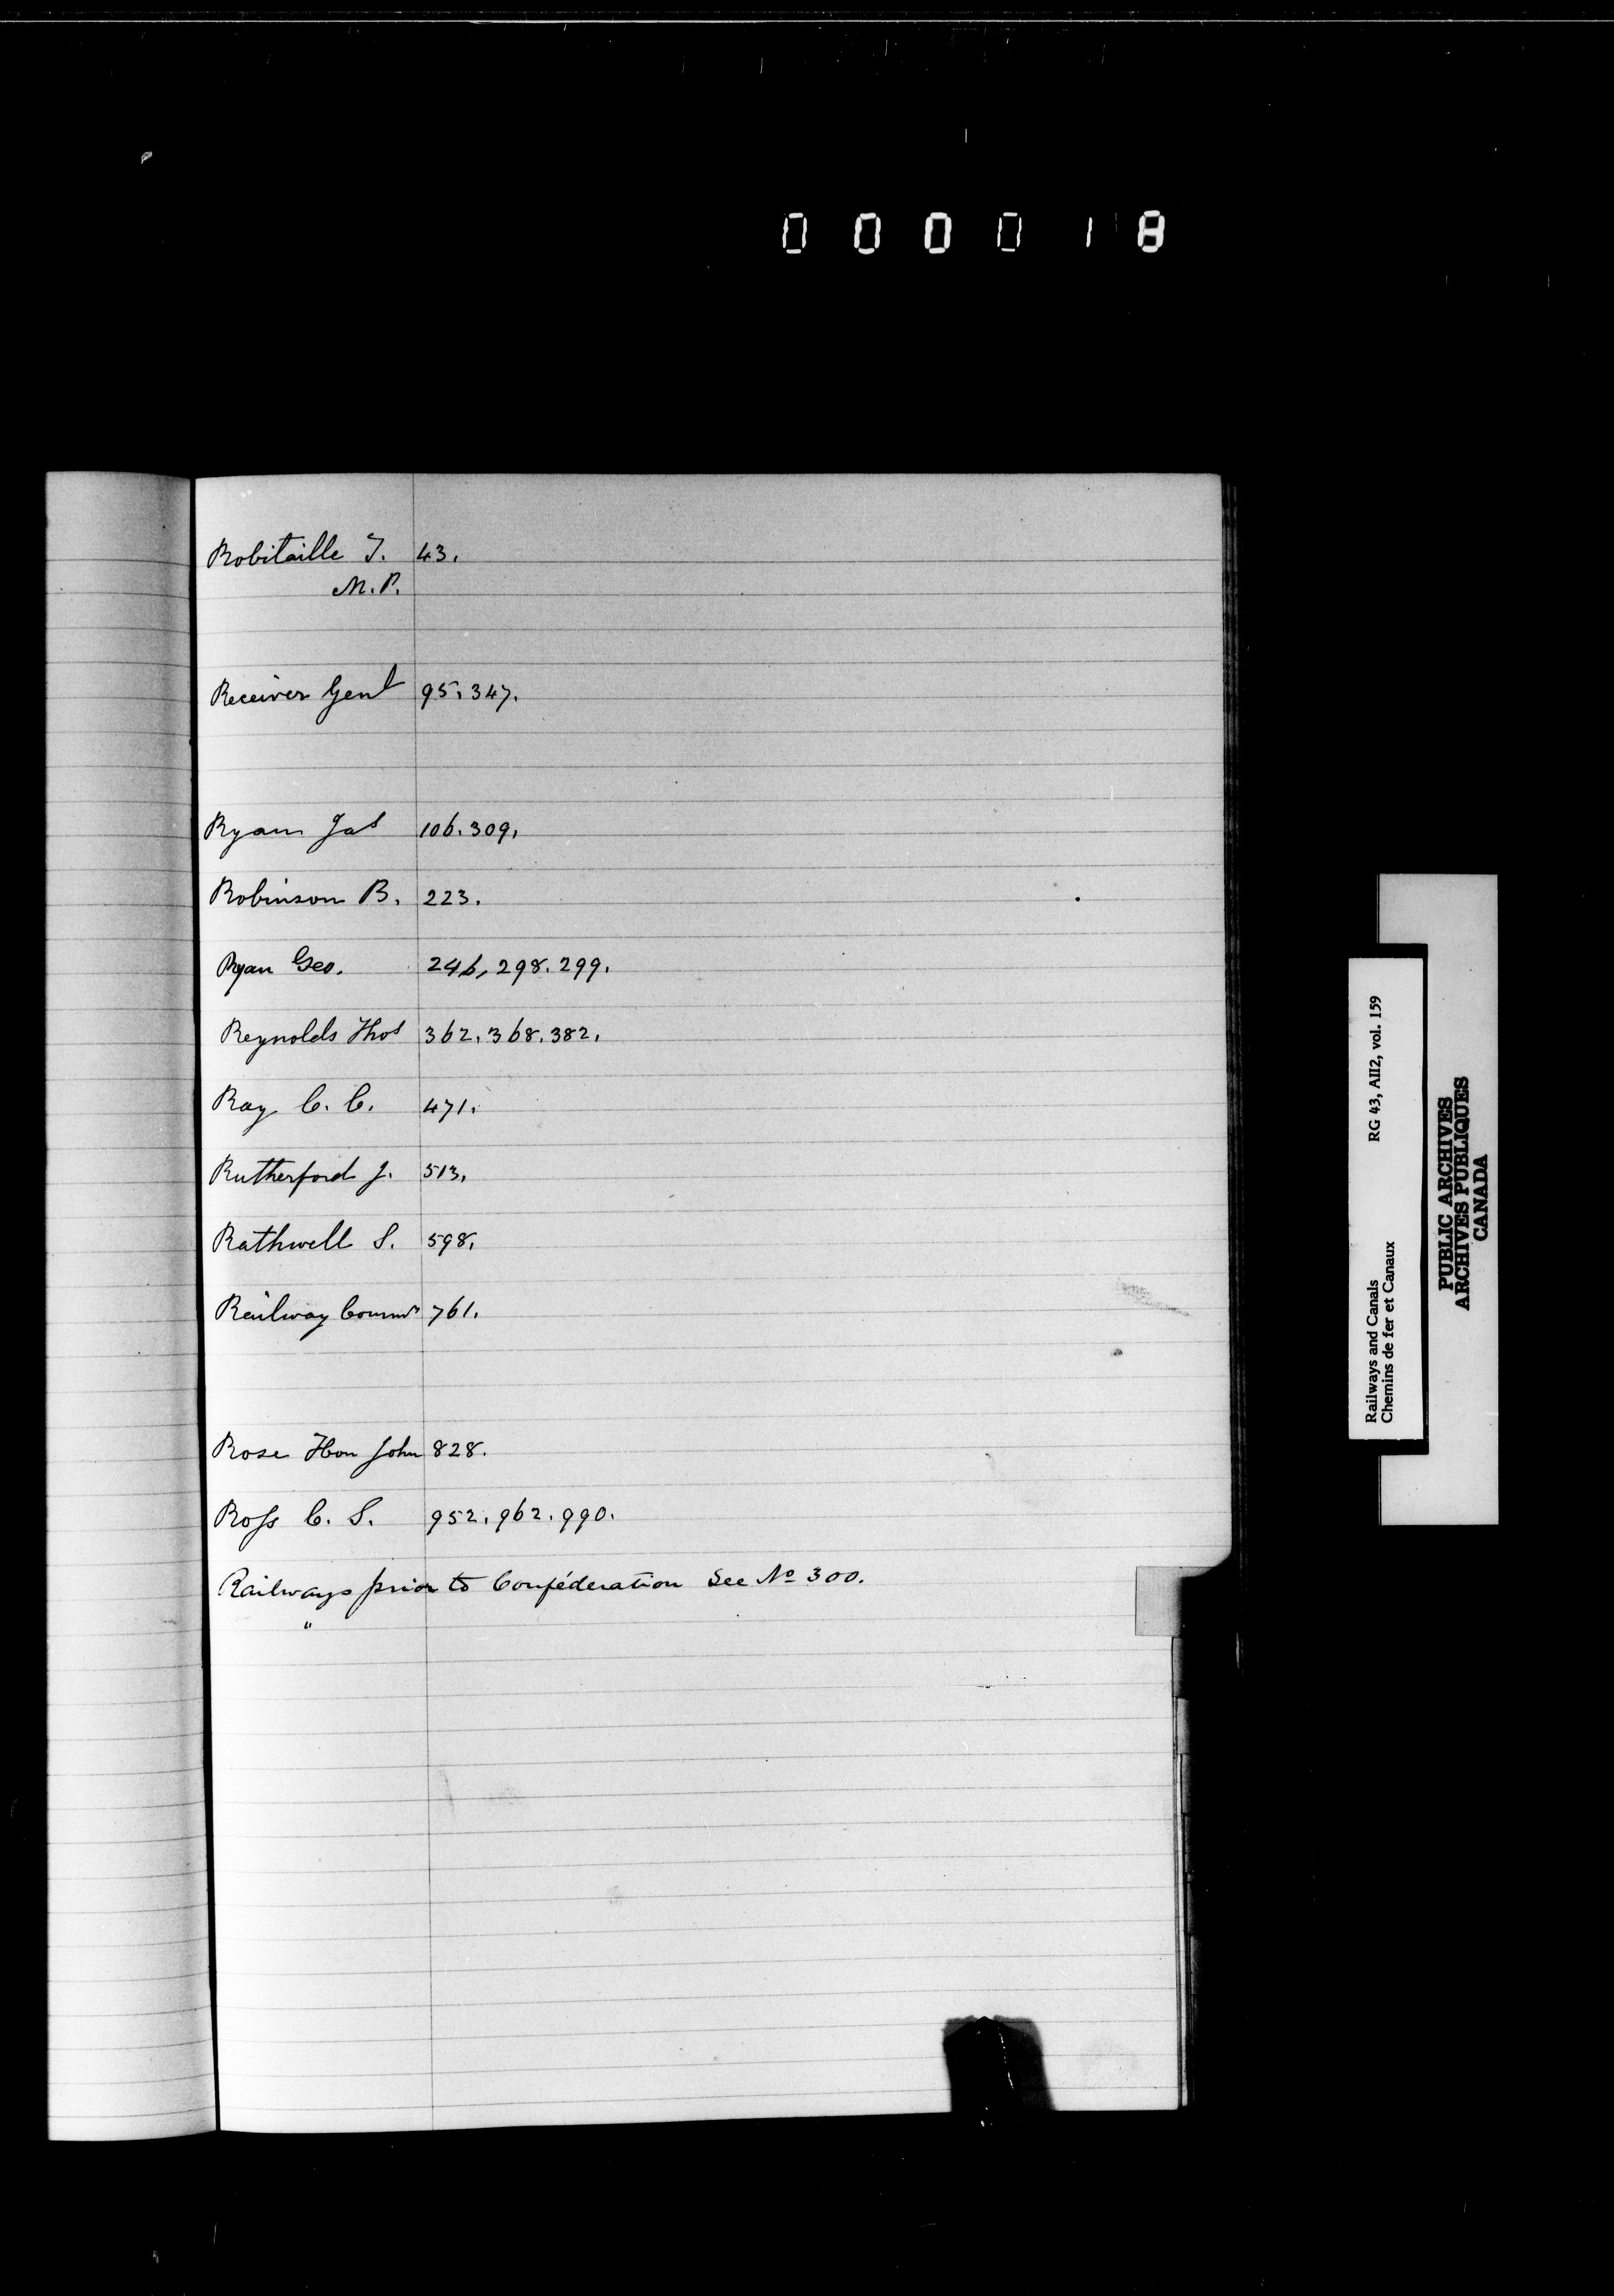 000018
Robitaille T. 43.
M.P.
Receiver Genl 95. 347.
Ryan Jas 106. 309.
Robinson B. 223.
Ryan Geo. 246, 298. 299.
Reynolds Thos 362. 368. 382.
Ray C. C. 471.
Rutherford J. 513.
Rathwell S. 598.
Railway Commrs 761.
Rose Hon John 828.
Ross C. S. 952. 962. 990.
Railways prior to Conféderation See No 300.
"
Railways and Canals RG 43, AII2, vol. 159
Chemins de fer et Canaux
PUBLIC ARCHIVES
ARCHIVES PUBLIQUES
CANADA